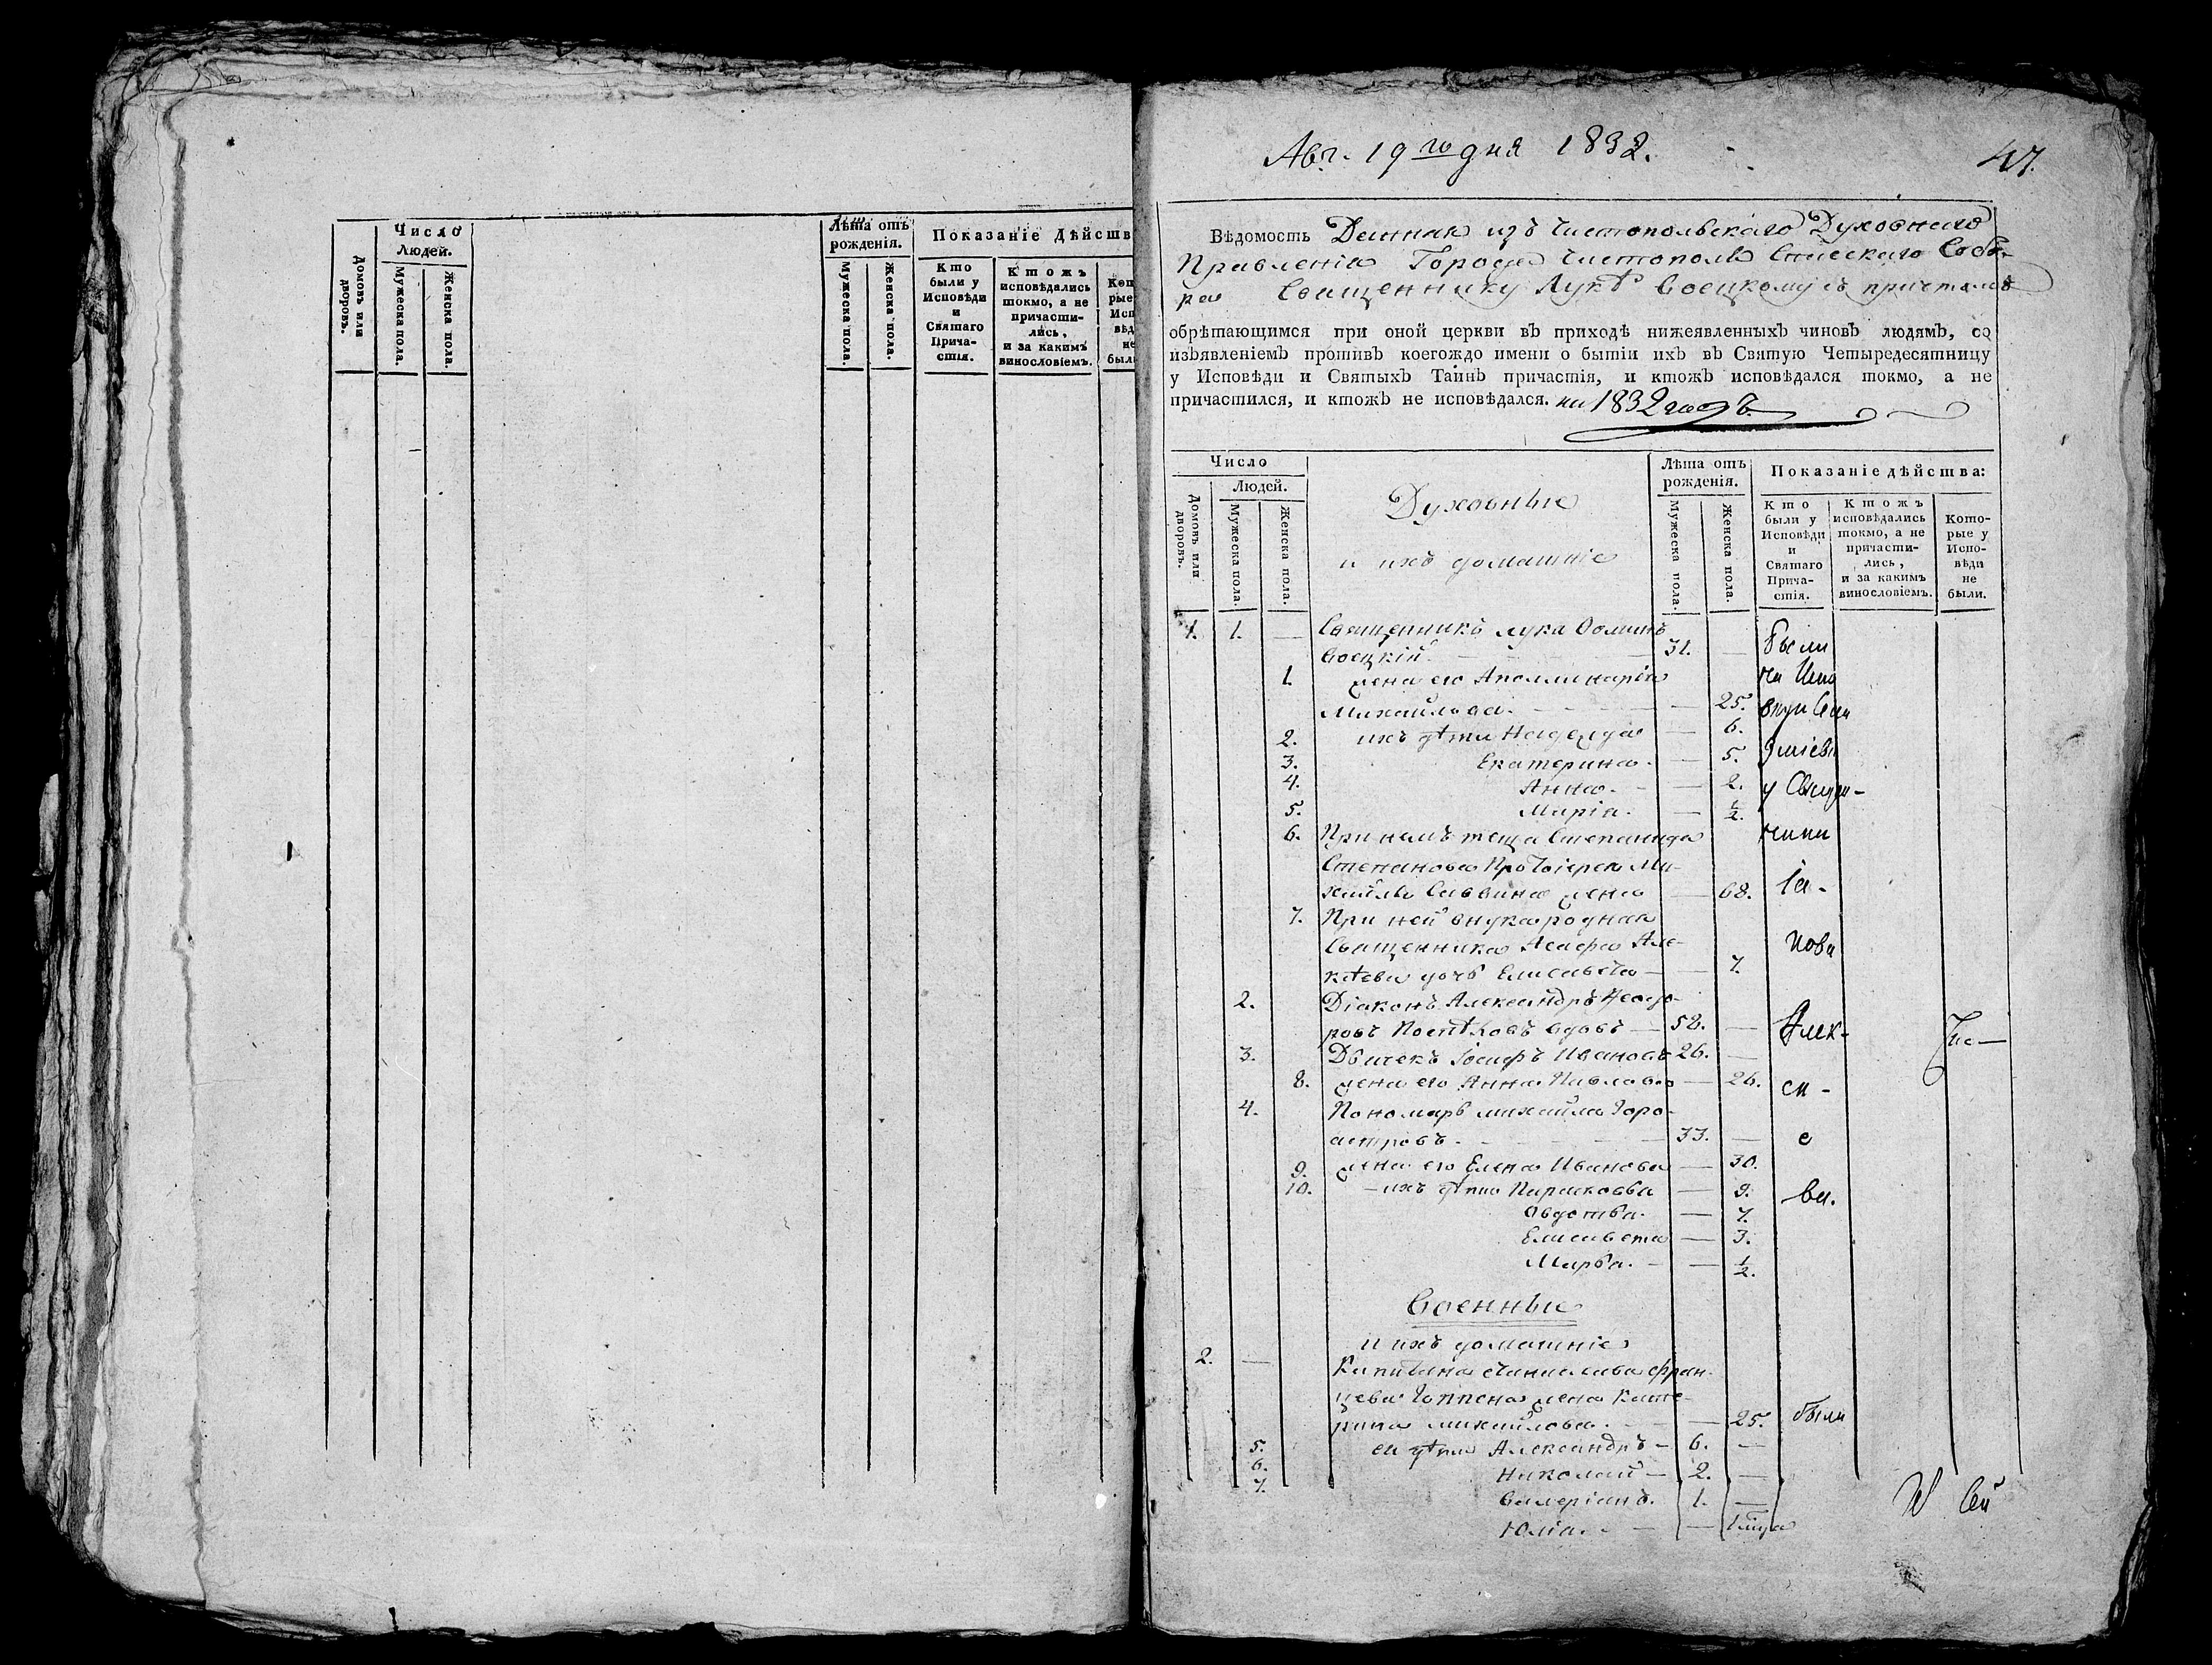 Число
Людей.
Домовъ или дворовъ.
Мужеска пола.
Женска пола.
Лѣта отъ
рожденія.
Мужеска пола.
Женска пола.
Показаніе Дѣйств
Кто
были у
Исповѣди
и
Святаго
Прича-
стія.
Ктожъ
исповѣдались
токмо, а не
причасти-
лись,
и за какимъ
винословіемъ.
Авг. 19го дня 1832.
47.
Вѣдомость Данная изъ Чистопольскаго Духовнаго
Правленія Города Чистополя Спаскаго Собо-
ра Священнику Лукѣ Воецкому съ причтомъ
обрѣтающимся при оной церкви въ приходѣ нижеявленныхъ чиновъ людямъ, со
изъявленіемъ противъ коегождо имени о бытіи ихъ въ Святую Четыредесятницу
у Исповѣди и Святыхъ Таинъ причастія, и ктожъ исповѣдался токмо, а не
причастился, и ктожъ не исповѣдался. на 1832 годъ
Число
Людей.
Домовъ или дворовъ.
Мужеска пола.
Женска пола.
Духовные
и ихъ домашніе
Лѣта отъ
рожденія.
Мужеска пола.
Женска пола.
Показаніе дѣйства:
Кто
были у
Исповѣди
и
Святаго
Прича-
стія.
Ктожъ
исповѣдались
токмо, а не
причасти-
лись,
и за какимъ
винословіемъ.
Кото-
рые у
Испо-
вѣди
не
были.
1. 1. — Священникъ Лука Ѳоминъ
Воецкій. 31. — были
1. жена его Аполлинарія
Михайлова. — 25.
2. ихъ дѣти Надежда — 6.
3. Екатерина. — 5.
4. Анна. — 2. у Священ-
5. Марія. — ½
6. При немъ теща Степанида ника
Степанова Протоіерея Ми-
хайла Саввина жена — 68. Іа-
7. При ней внука родная
Священника Іосифа Але- кова
ксѣева дочь Елисавета — 7.
2. Діаконъ Александръ Ѳеодо-
ровъ Поспѣховъ вдовъ — 52. — Алек-
3. Дьячекъ Іосифъ Ивановъ 26. —
8. жена его Анна Павлова — 26. сѣ-
4. Пономарь Михайла Зоро-
астровъ. 33. — е
9. жена его Елена Иванова — 30.
10. ихъ дѣти Парасковья — 9. ва.
Авдотья. — 7.
Елисавета — 3.
Марѳа. — ½.
Военные
и ихъ домашніе
2. — Капитана Станислава Фран-
цева жена Кате-
рина Михайлова. — 25. были
5. ея дѣти Александръ — 6. —
6. Николай — 2. —
7. Валеріанъ. 1. —
Юлія. —